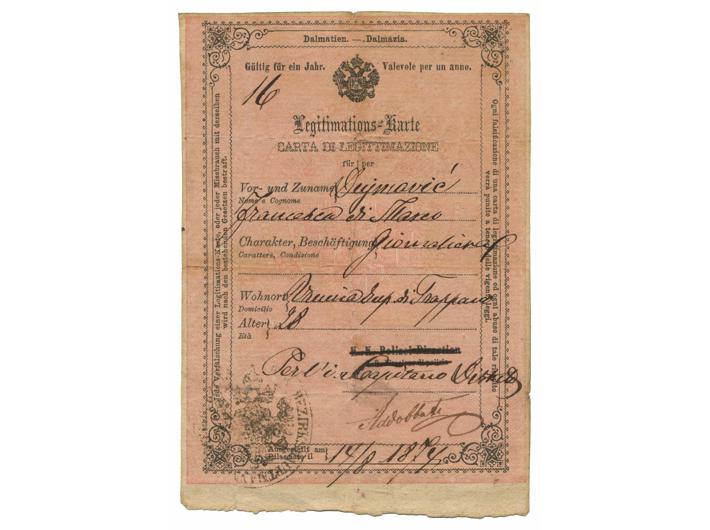 Dalmatien. — Dalmazia.
Gültig für ein Jahr. Valevole per un anno.
16
Legitimations-Karte
CARTA DI LEGITTIMAZIONE
für | per
Vor- und Zuname
Nome e Cognome
Francesca di Marco
Charakter, Beschäftigung
Carattere, Condizione
Wohnort
Domicilio
di Trappano
Alter
Età
28
K. K. Polizei-Direction
Per l'i. r. Capitano
Ausgestellt am
Rilasciata il
14/8 1874
Jede Verfälschung einer Legitimations-Karte, oder jeder Missbrauch mit derselben
wird nach den bestehenden Gesetzen bestraft.
Ogni falsificazione di una carta di legittimazione od ogni abuso di tale
verrà punito a tenore delle vigenti leggi.